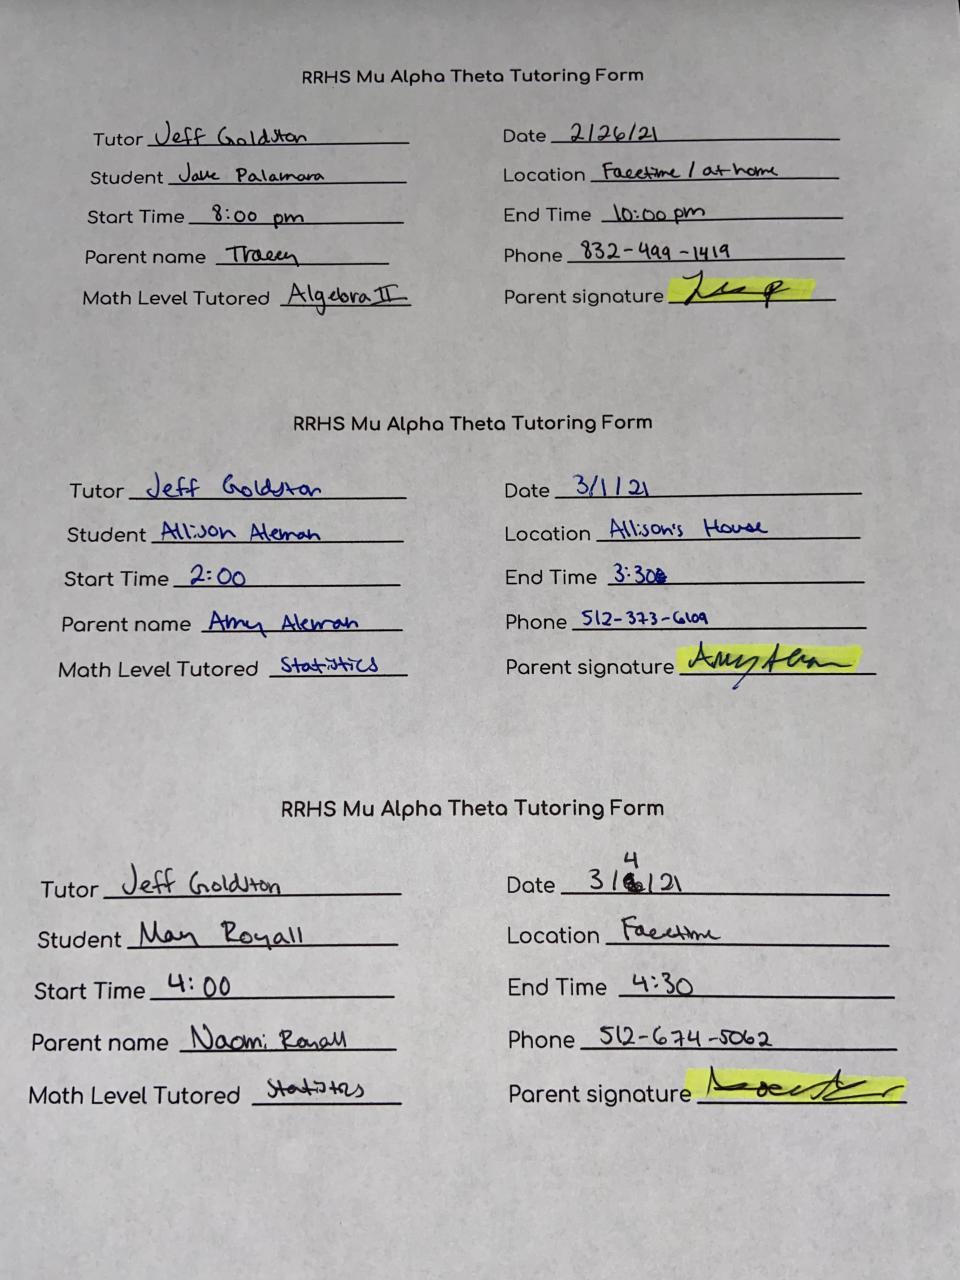 RRHS Mu Alpha Theta Tutoring Form
Tutor Jeff Goldston Date 2/26/21
Student Jake Palamara Location Facetime / at home
Start Time 8:00 pm End Time 10:00 pm
Parent name Tracey Phone 832-499-1419
Math Level Tutored Algebra II Parent signature
RRHS Mu Alpha Theta Tutoring Form
Tutor Jeff Goldston Date 3/1/21
Student Allison Aleman Location Allison's House
Start Time 2:00 End Time 3:30
Parent name Amy Aleman Phone 512-373-6109
Math Level Tutored Statistics Parent signature Amy Aleman
RRHS Mu Alpha Theta Tutoring Form
Tutor Jeff Goldston Date 3/4/21
Student Royall Location Facetime
Start Time 4:00 End Time 4:30
Parent name Naomi Royall Phone 512-674-5062
Math Level Tutored Statistics Parent signature